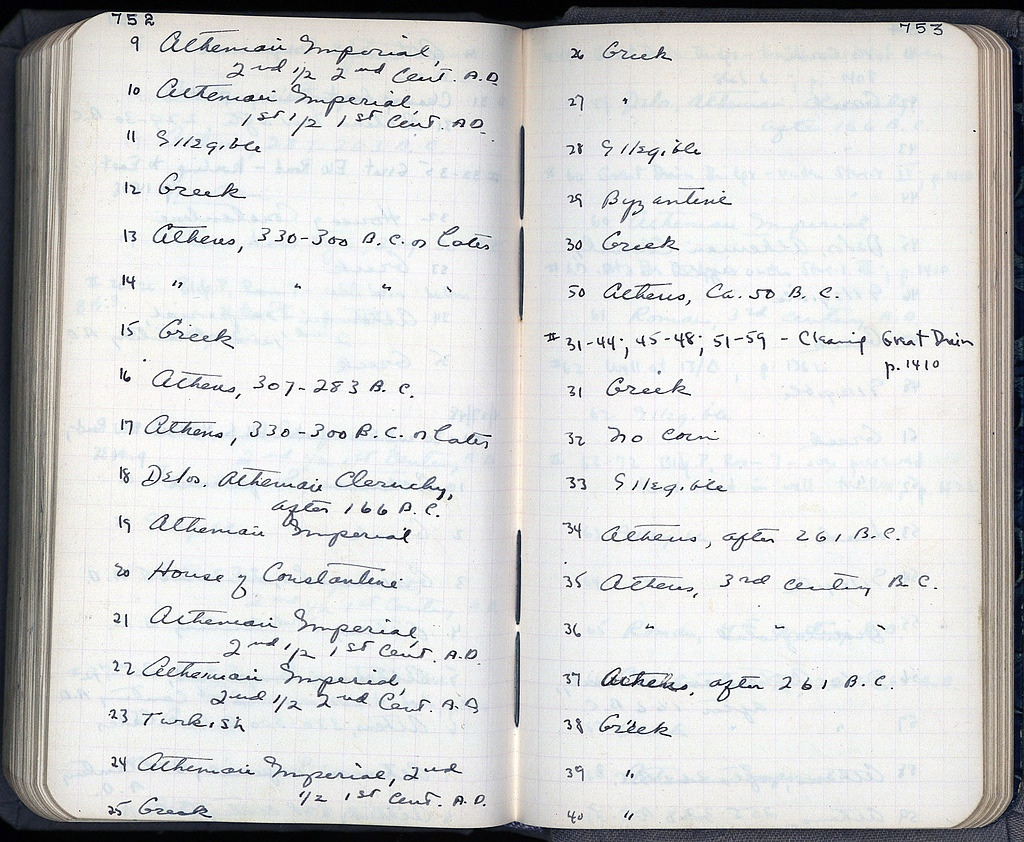 752
9 Athenian Imperial,
2nd 1/2 2nd Cent. A.D.
10 Athenian Imperial
1st 1/2 1st Cent. A.D.
11 Illegible
12 Greek
13 Athens, 330-300 B.C. or later
14 " " " "
15 Greek
16 Athens, 307-283 B.C.
17 Athens, 330-300 B.C. or later
18 Delos. Athenian Cleruchy,
after 166 B.C.
19 Athenian Imperial
20 House of Constantine
21 Athenian Imperial,
2nd 1/2 1st Cent. A.D.
22 Athenian Imperial
2nd 1/2 2nd Cent. A.D
23 Turkish
24 Athenian Imperial, 2nd
1/2 1st Cent. A.D.
25 Greek
753
26 Greek
27 "
28 Illegible
29 Byzantine
30 Greek
50 Athens, Ca. 50 B.C.
# 31-44; 45-48; 51-59 - Cleaning Great Drain
p. 1410
31 Greek
32 No coin
33 Illegible
34 Athens, after 261 B.C.
35 Athens, 3rd century B.C.
36 " " "
37 Athens, after 261 B.C.
38 Greek
39 "
40 "